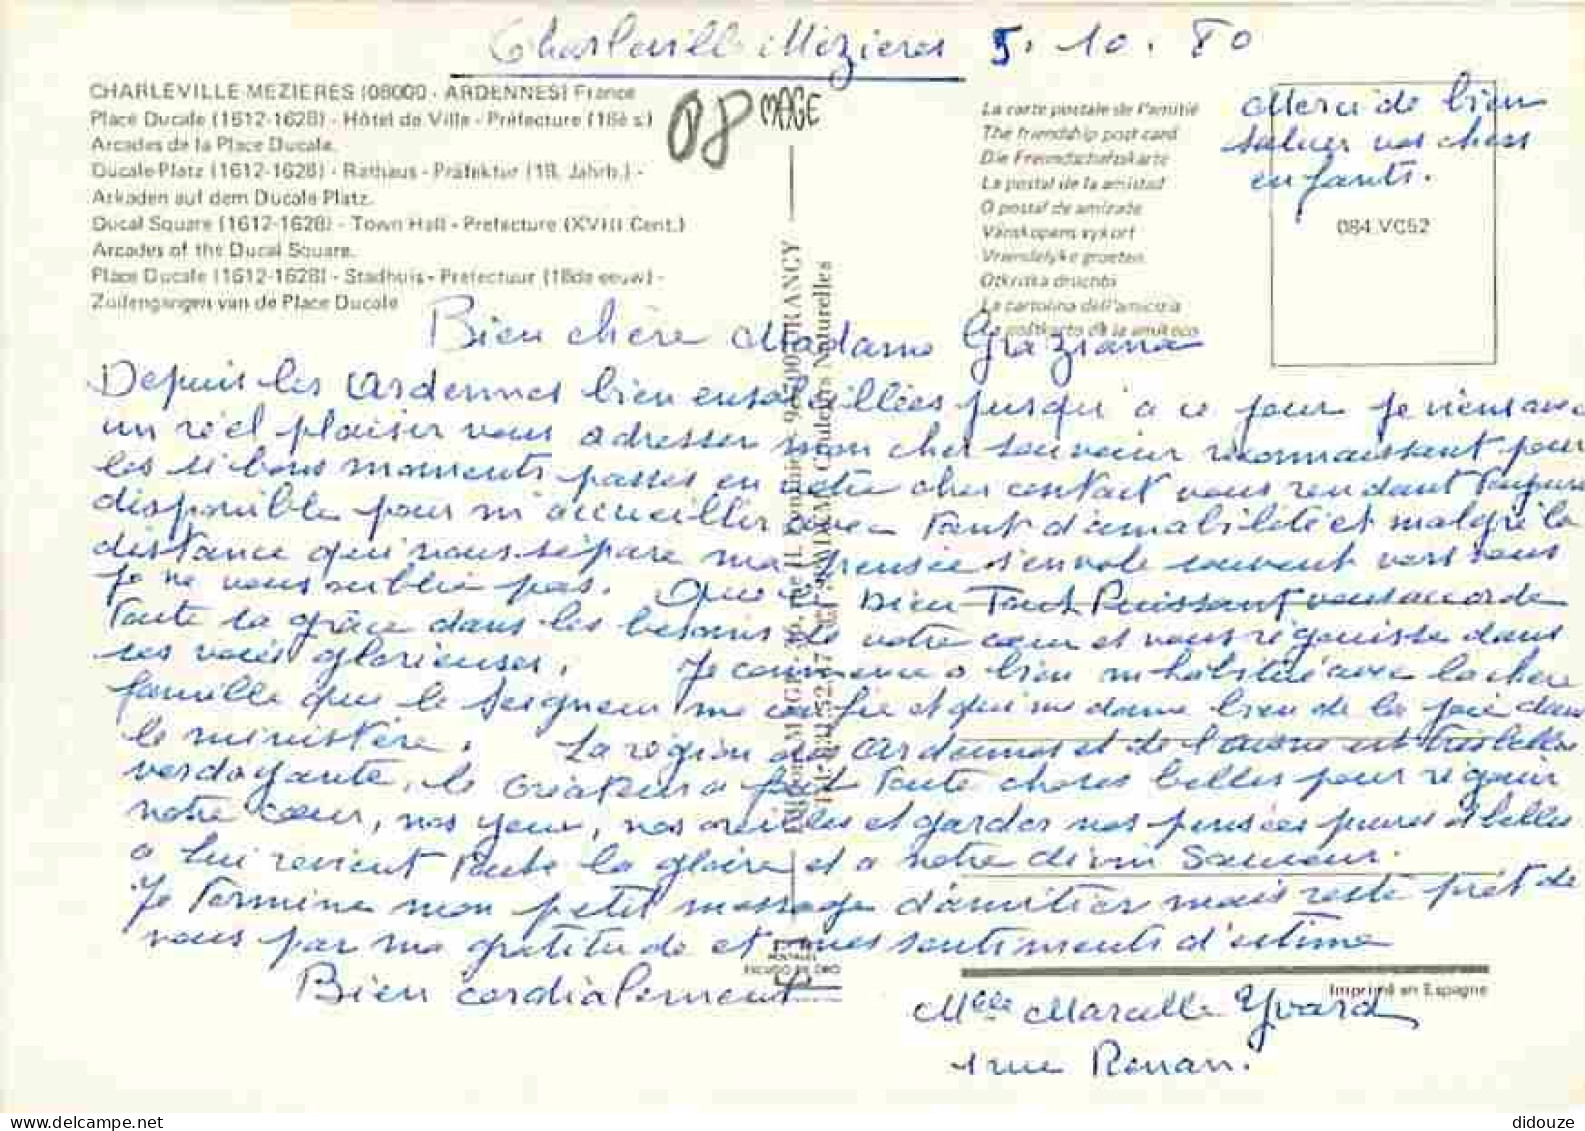 Charleville Mézières 5.10.80
CHARLEVILLE MEZIERES (08000 - ARDENNES) France
Place Ducale (1612-1628) - Hôtel de Ville - Préfecture (18è s.)
Arcades de la Place Ducale.
Ducale-Platz (1612-1628) - Rathaus - Präfektur (18. Jahrh.) -
Arkaden auf dem Ducale Platz.
Ducal Square (1612-1628) - Town Hall - Prefecture (XVIII Cent.)
Arcades of the Ducal Square.
Place Ducale (1612-1628) - Stadhuis - Prefectuur (18de eeuw) -
Zuilengangen van de Place Ducale
08 MAGE
La carte postale de l'amitié
The friendship post card
Die Freundschaftskarte
La postal de la amistad
O postal de amizade
Vänskapens vykort
Vriendelijke groeten
Otkritka druchbi
La cartolina dell'amicizia
La postkarto de la amikeco
Merci de bien
saluer vos chers
enfants.
084.VC52
Bien chère Madame Graziana
Depuis les Ardennes bien ensoleillées jusqu'à ce jour je viens avec
un réel plaisir vous adresser mon cher souvenir reconnaissant pour
les si bons moments passés en votre cher contact vous rendant toujours
disponible pour m'accueillir avec tant d'amabilité et malgré la
distance qui nous sépare ma pensée s'envole souvent vers vous
je ne vous oublie pas. Que le Dieu Tout Puissant vous accorde
toute sa grâce dans les besoins de votre cœur et vous réjouisse dans
ses voies glorieuses. Je commence a bien m'habitué avec la chère
famille que le Seigneur me confie et qui me donne bien de la joie dans
le ministère. La région des Ardennes et de l'Aisne est très belle
verdoyante, le Créateur a fait toute choses belles pour réjouir
notre cœur, nos yeux, nos oreilles et garder nos pensées pures et belles
a lui revient toute la gloire et a notre divin Sauveur.
Je termine mon petit message d'amitié mais reste prêt de
vous par ma gratitude et mes sentiments d'estime
Bien cordialement
ESCUDO DE ORO
Imprimé en Espagne
Mlle Marcelle Yvard
1 rue Renan.
Couleurs Naturelles
didouze